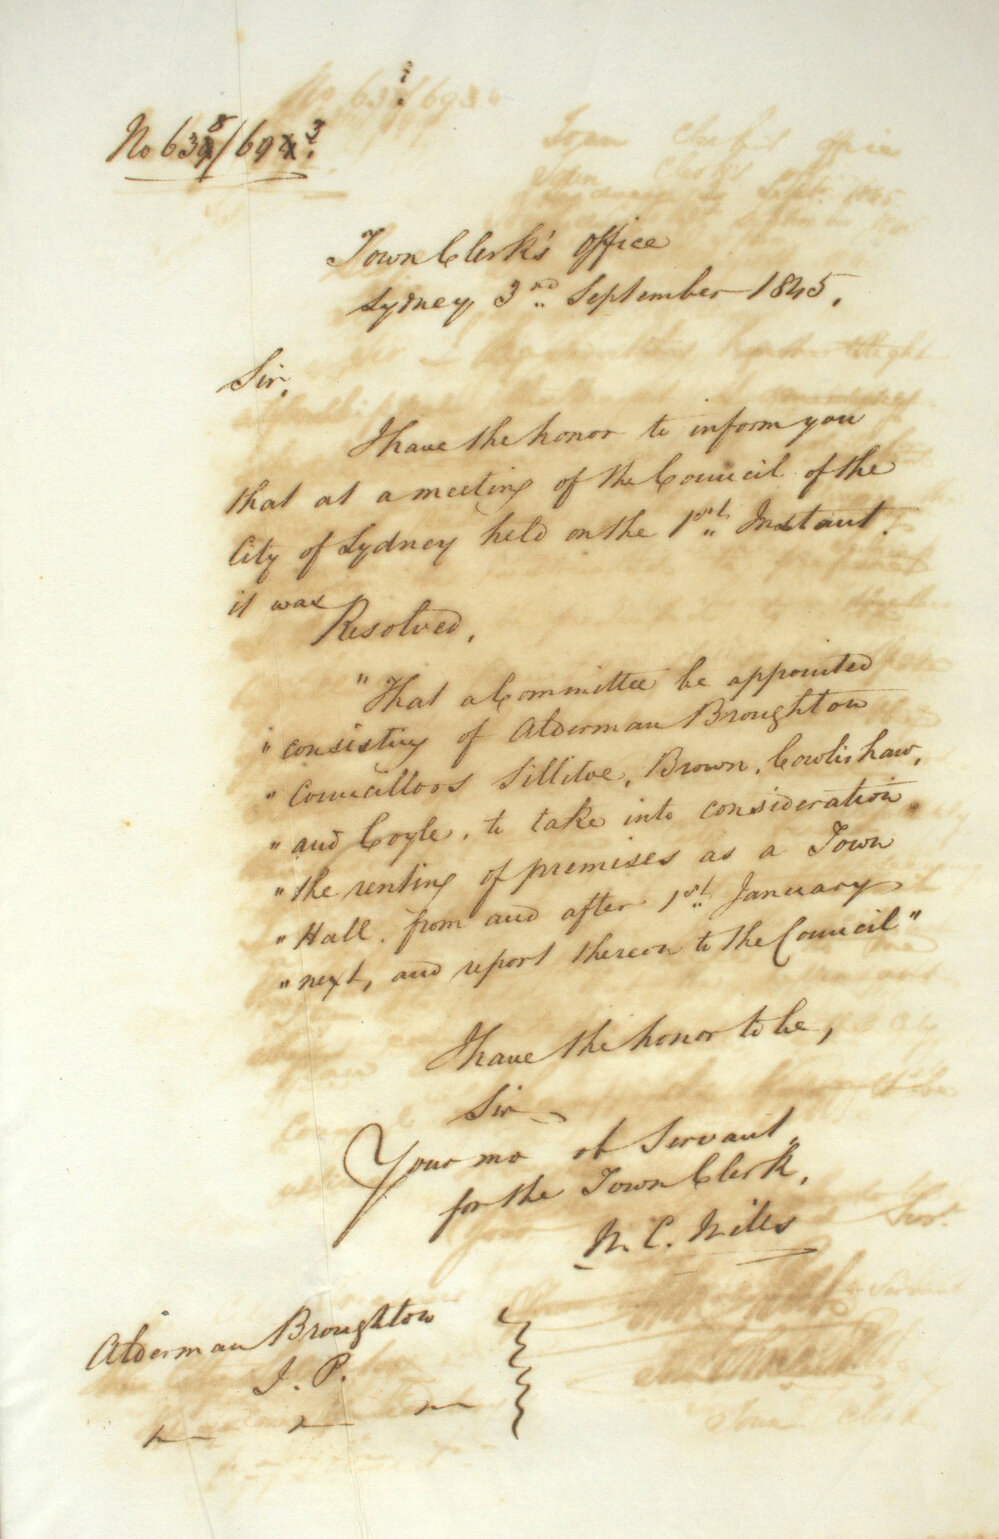 No 638/693.
Town Clerk's Office
Sydney 3rd September 1845.
Sir,
I have the honor to inform you
that at a meeting of the Council of the
City of Sydney held on the 1st Instant.
it was
Resolved,
"That a Committee be appointed
" consisting of Alderman Broughton
" Councillors Sillitoe, Brown, Cowlishaw,
" and Coyle, to take into consideration
" the renting of premises as a Town
" Hall. from and after 1st January
" next, and report thereon to the Council"
I have the honor to be,
Sir
Your mo ob Servant,
for the Town Clerk,
W. C. Wills
Alderman Broughton
J. P.